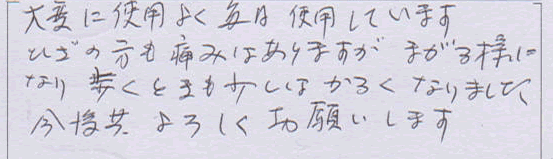 大変に使用よく毎日使用しています
ひざの方も痛みはありますがまがる様に
なり歩くときも少しはかるくなりました、
今後共よろしく功願いします